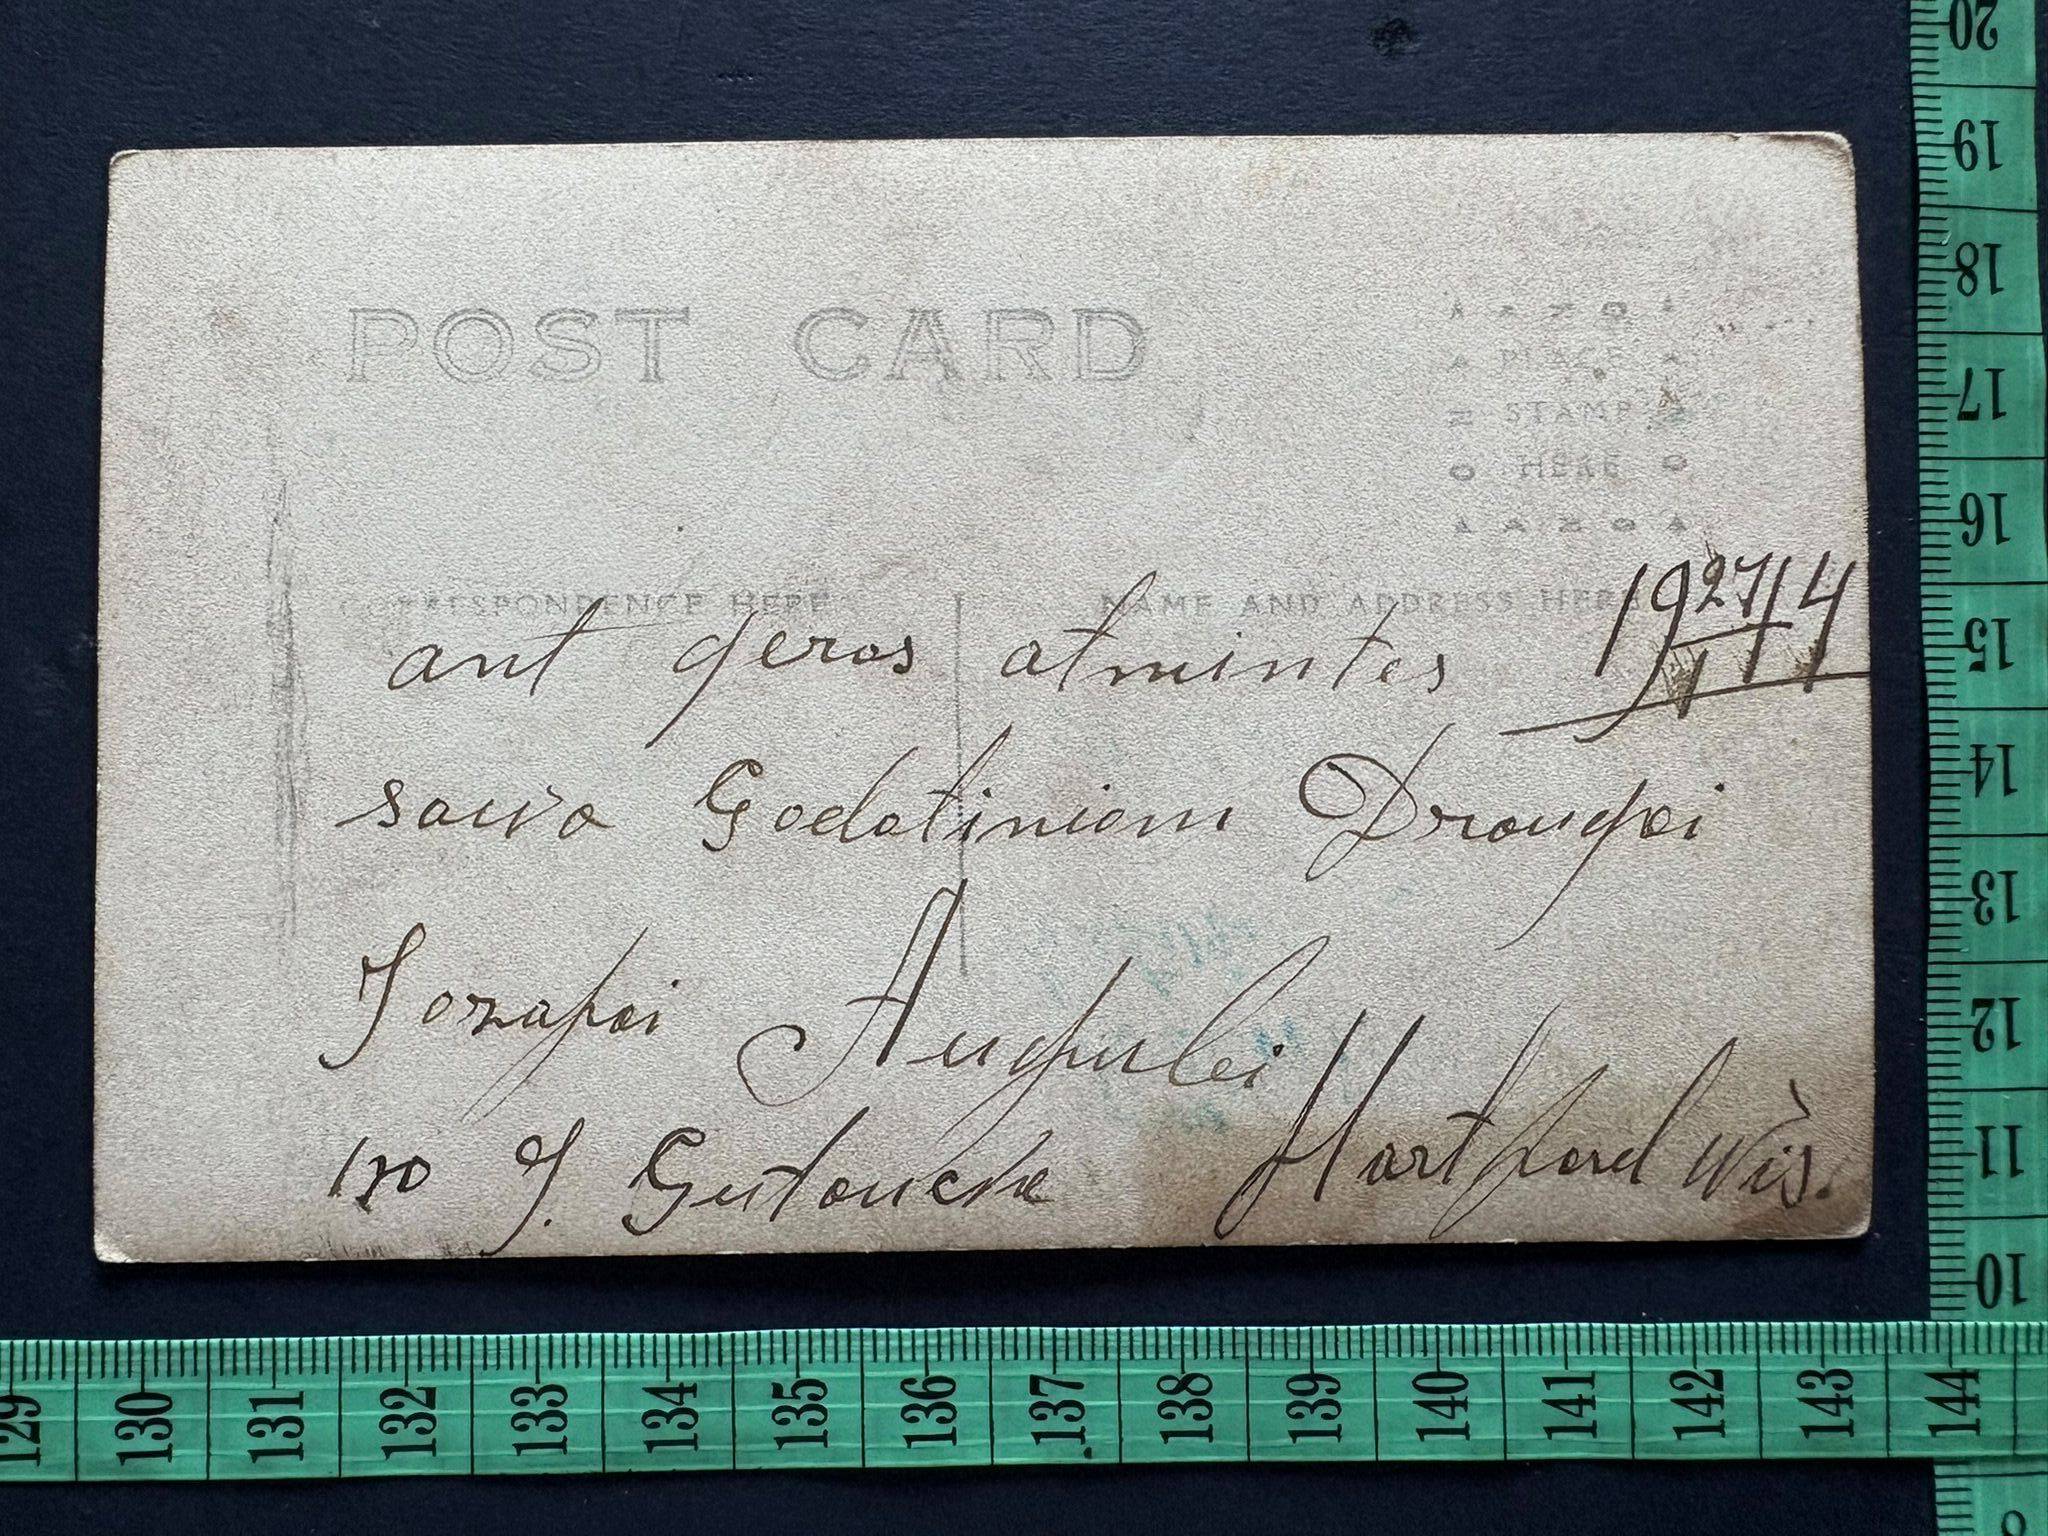 POST CARD
AZO
A PLACE A
Z STAMP Z
O HERE O
AZO
CORRESPONDENCE HERE
NAME AND ADDRESS HERE
ant geros atmintes 19 27/II 14
sawo Godotiniam Draugai
Jozapai Augulei
J. Hartford Wis.
20
19
18
17
16
15
14
13
12
11
10
129 130 131 132 133 134 135 136 137 138 139 140 141 142 143 144